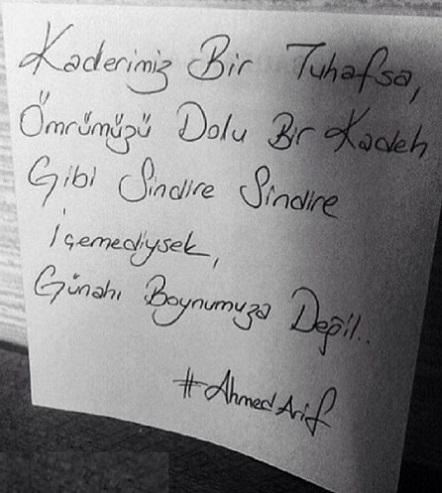 Kaderimiz Bir Tuhafsa,
Ömrümüzü Dolu Bir Kadeh
Gibi Sindire Sindire
İçemediysek,
Günahı Boynumuza Değil..
#AhmedArif